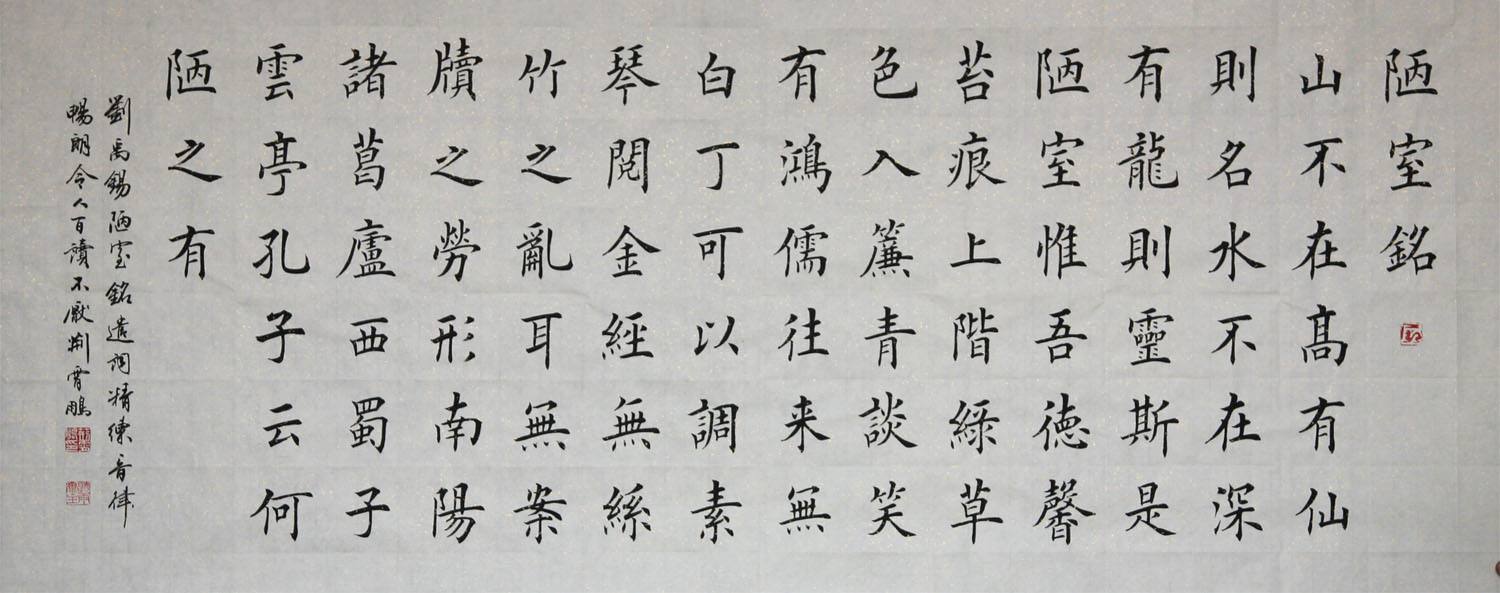 陋室銘
山不在髙有仙
則名水不在深
有龍則靈斯是
陋室惟吾徳馨
苔痕上階緑草
色入簾青談笑
有鴻儒往来無
白丁可以調素
琴閱金經無絲
竹之亂耳無案
牘之勞形南陽
諸葛廬西蜀子
雲亭孔子云何
陋之有
劉禹錫陋室銘遣詞精練音律
暢朗令人百讀不厭荊霄鵬